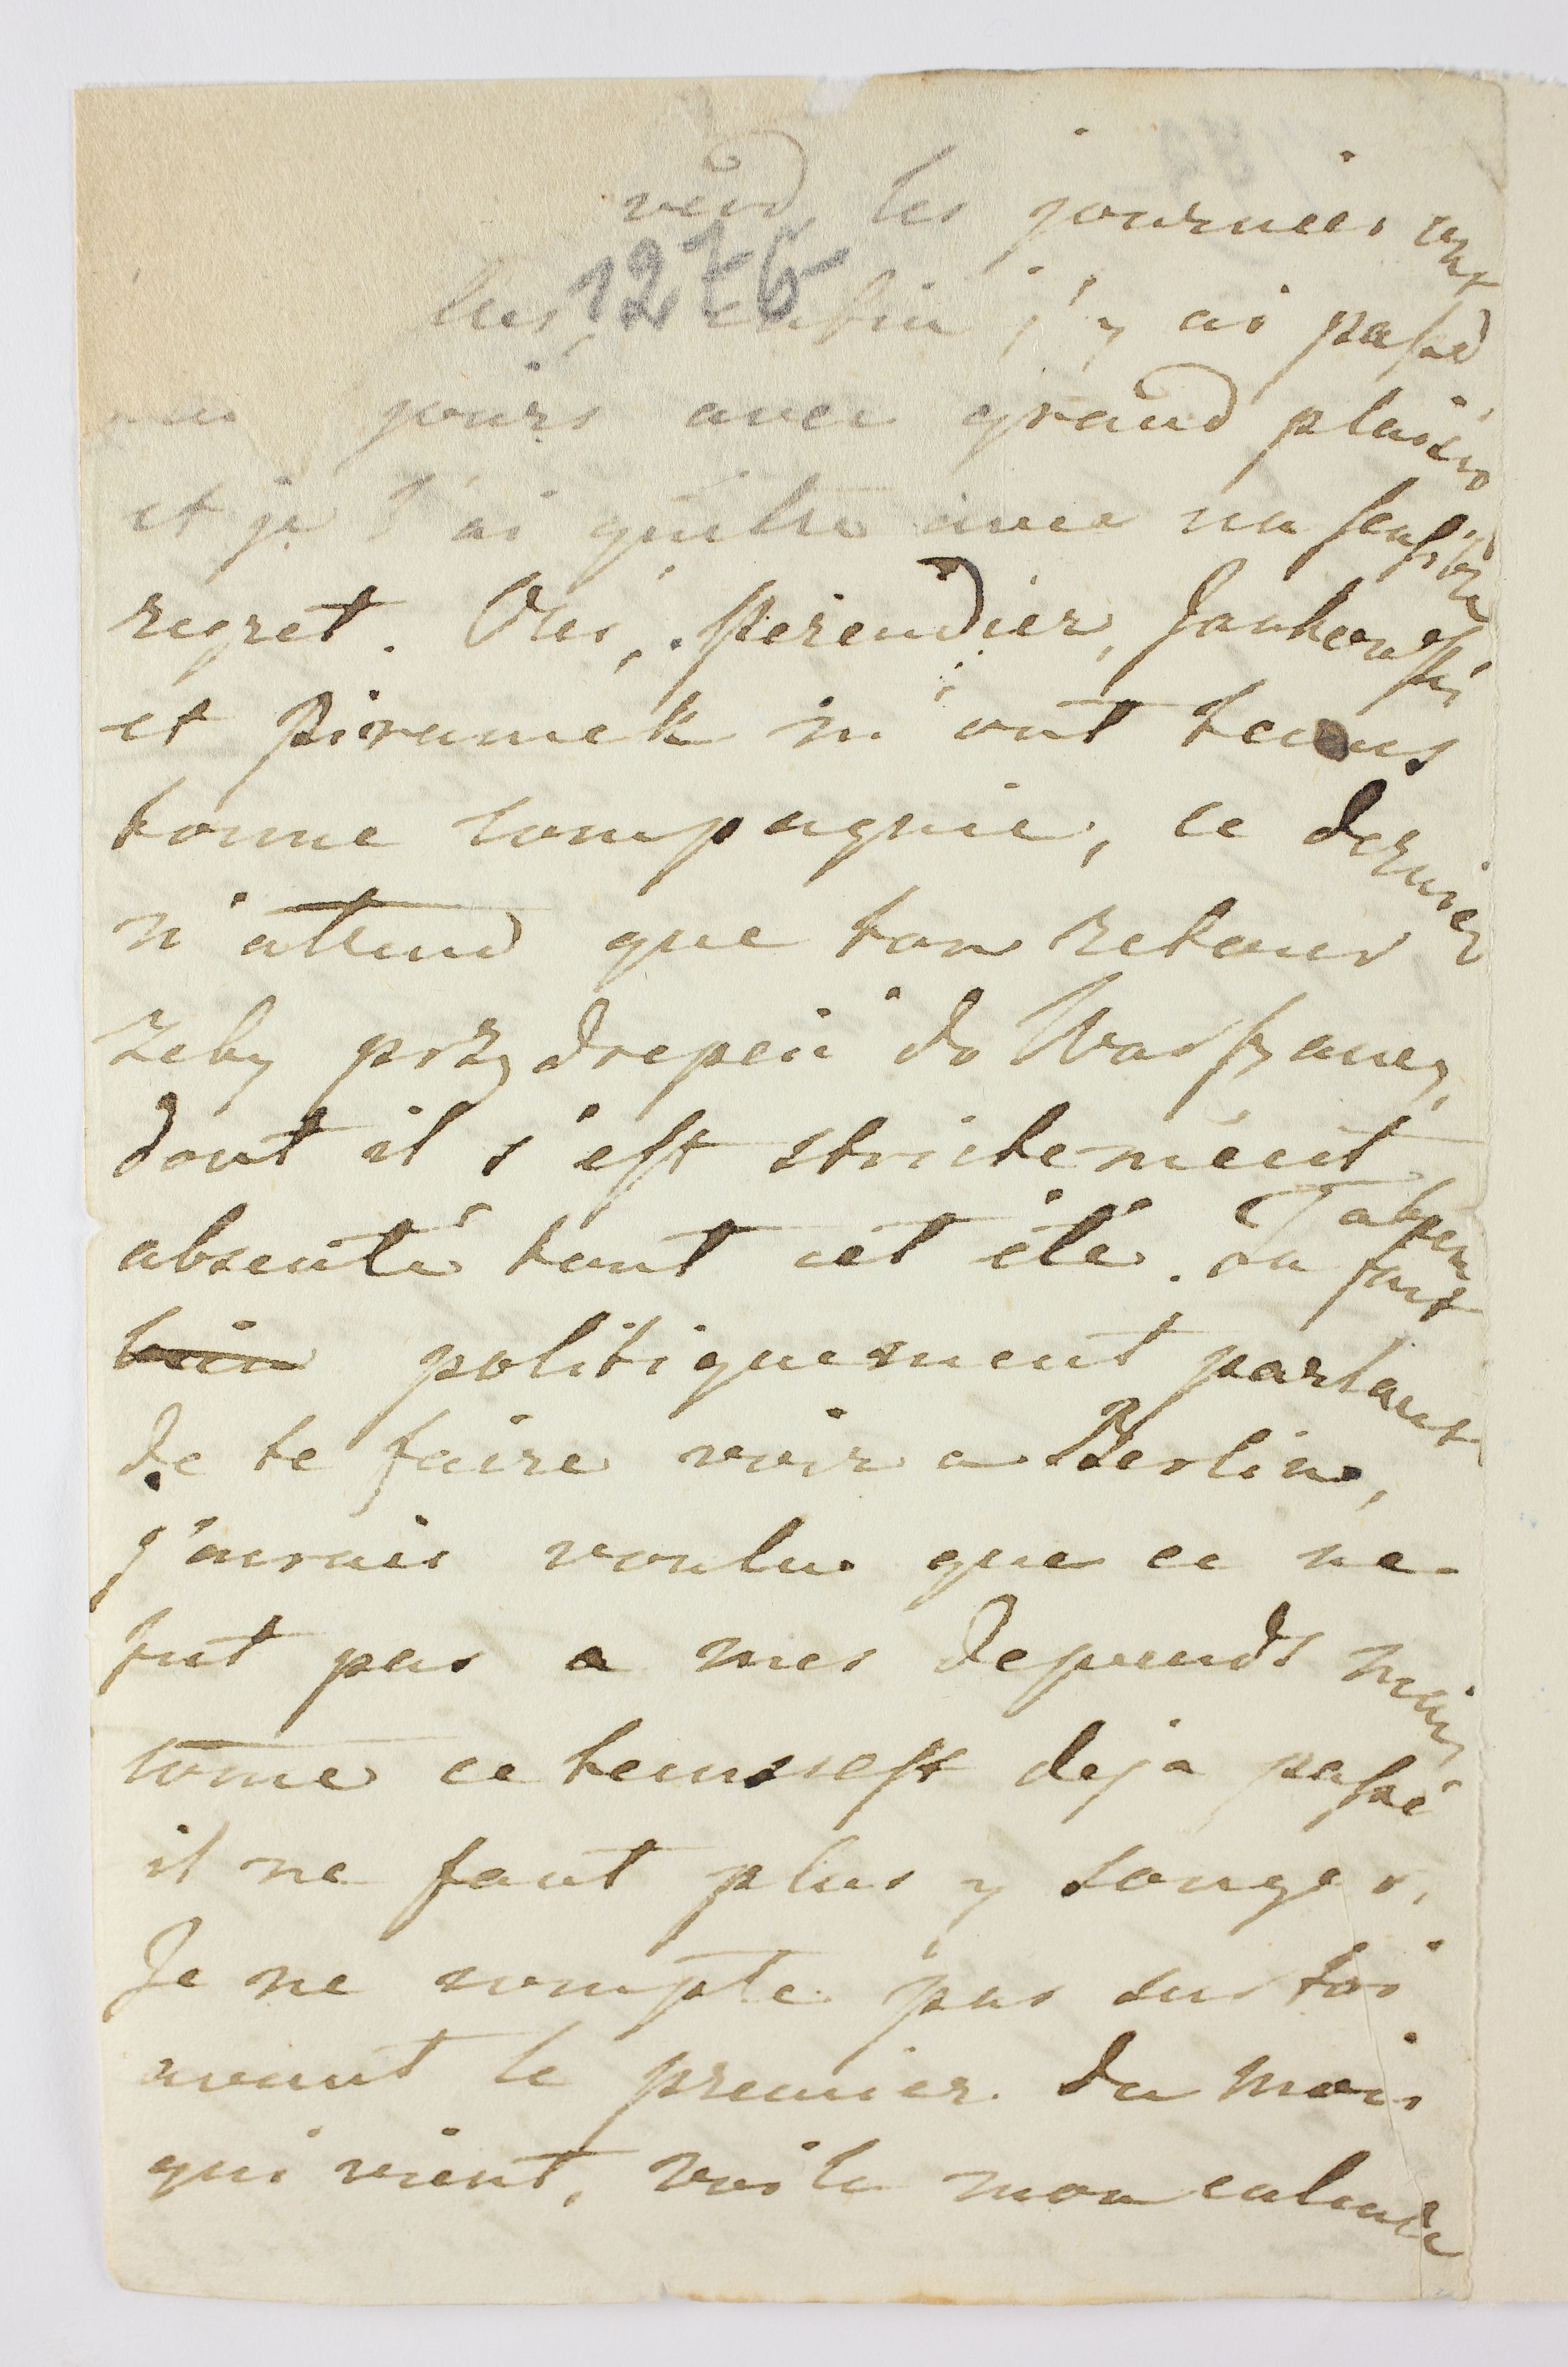 vend, les journées
1276
enfin j'y ai passé
jours avec grand plaisir
et je l'ai quitté avec un sensible
regret. Oles, Perendier, Jankowski
et Piramek m'ont tenus
bonne compagnie, ce dernier
n'attend que ton retour
żeby przydrepcić do Warszawy,
dont il s'est strictement
absenté tout cet été. Ta bien fait
bien politiquement parlant
de te faire voir a Berlin,
j'aurais voulu que ce ne
fut pas a mes depends mais
come ce tems est deja passé
il ne faut plus y songer.
Je ne compte pas sur toi
avant le premier du mois
qui vient, voila mon